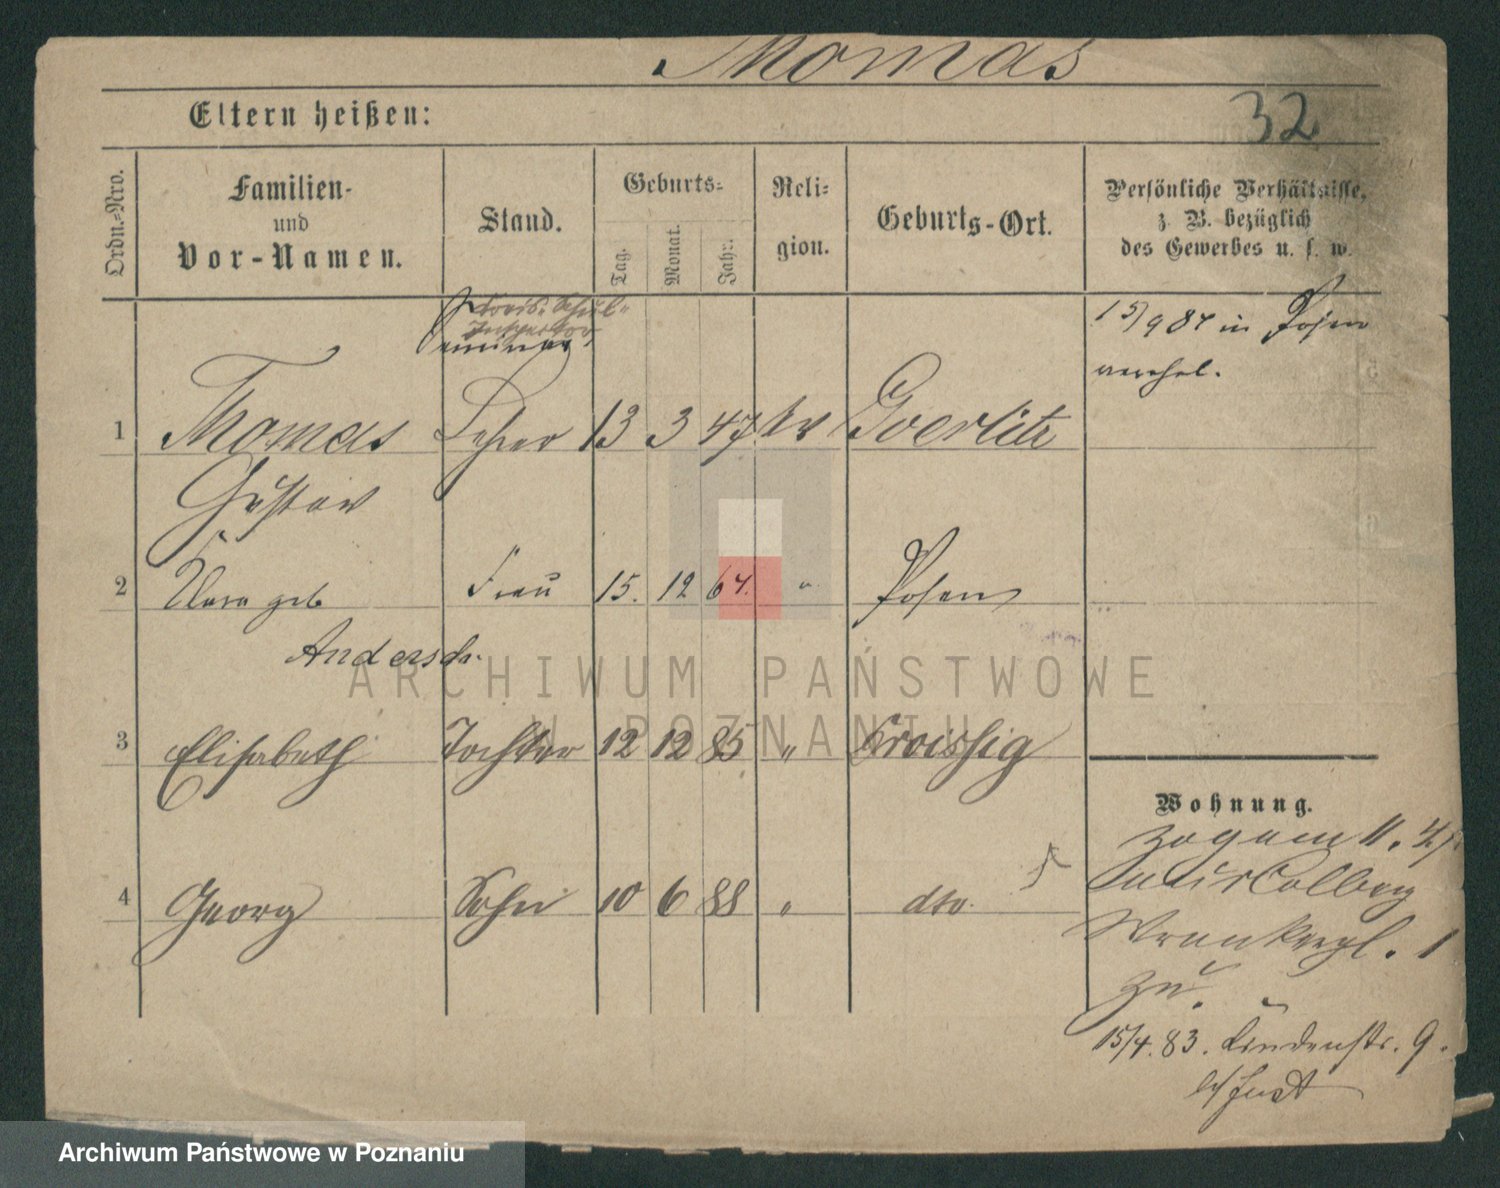 Thomas
32
Eltern heißen:
Ordn.=Nro.
Familien-
und
Vor-Namen.
Stand.
Geburts=
Tag.
Monat.
Jahr.
Reli=
gion.
Geburts-Ort.
Persönliche Verhältnisse,
z. B. bezüglich
des Gewerbes u. s. w.
Kreis-Schul-
Inspector
Seminar
15/9 84 in Posen
verehel.
1 Thomas Lehrer 13 3 47 Goerlitz
Gustav
2 Clara geb Frau 15. 12 64. " Posen
Andersch.
3 Elisabeth Tochter 12 12 85 "
4 Georg Sohn 10 6 88 " dto.
Wohnung.
zogam 11. 4/
Colberg
1
zu.
15/4. 83. Lindenstr. 9.
b/ Just
ARCHIWUM PAŃSTWOWE
W POZNANIU
Archiwum Państwowe w Poznaniu